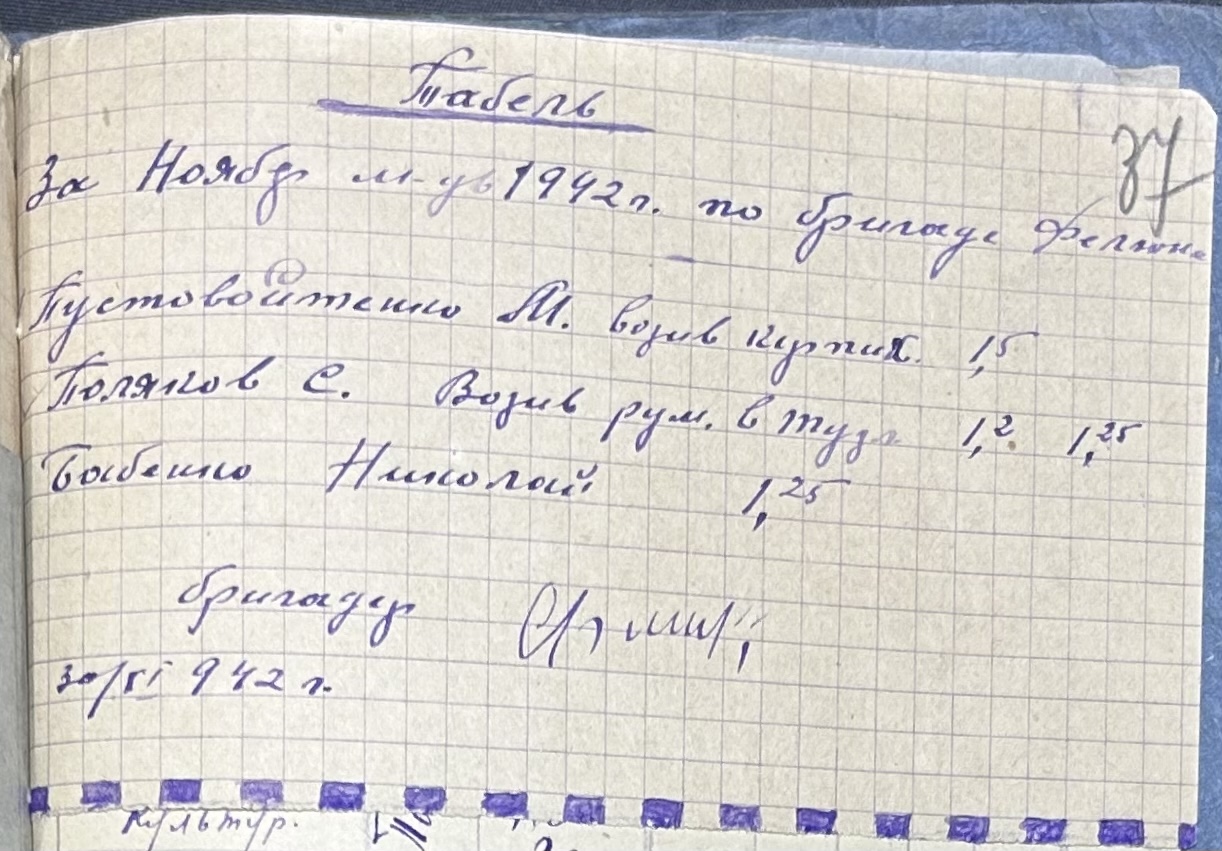 Табель
37
За Ноябр м-ць 1942 г. по бригаде
Пустовойтенко М. возив кирпич. 1,5
Поляков С. Возив рум. в 1,2 1,25
Бабенко Николай 1,25
бригадир
30/XI 942 г.
культур.